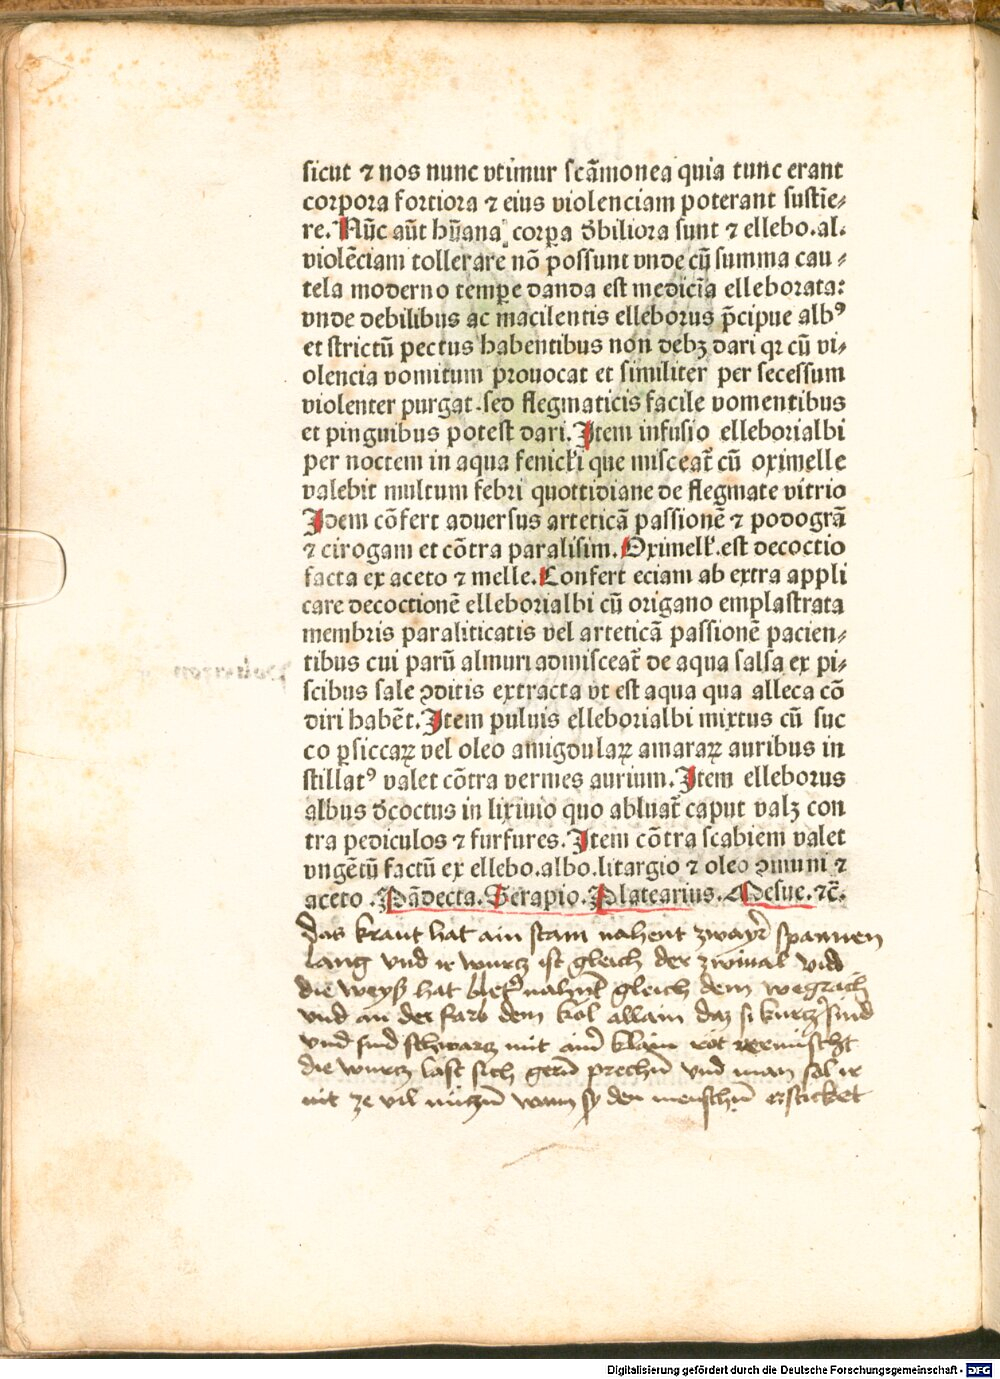 sicut ⁊ nos nunc vtimur scãmonea quia tunc erant
corpora fortiora ⁊ eius violenciam poterant sustĩe⸗
re. Nũc aũt hũana corpa d̃biliora sunt ⁊ ellebo. al.
violẽciam tollerare nõ possunt vnde cũ summa cau⸗
tela moderno tempe danda est medicĩa elleborata:
vnde debilibus ac macilentis elleborus p̃cipue albꝰ
et strictũ pectus habentibus non debꝫ dari qꝛ cũ vi⸗
olencia vomitum prouocat et similiter per secessum
violenter purgat. sed flegmaticis facile vomentibus
et pinguibus potest dari. Item infusio elleborialbi
per noctem in aqua fenicl̃i que misceat̃ cũ oximelle
valebit multum febri quottidiane de flegmate vitrio
Idem cõfert aduersus arteticã passionẽ ⁊ podogrã
⁊ cirogam et cõtra paralisim. Oximell̃. est decoctio
facta ex aceto ⁊ melle. Confert eciam ab extra appli
care decoctionẽ elleborialbi cũ origano emplastrata
membris paraliticatis vel arteticã passionẽ pacien⸗
tibus cui parũ almuri admisceat̃ de aqua salsa ex pi⸗
scibus sale ꝯditis extracta vt est aqua qua alleca cõ
diri habẽt. Item puluis elleborialbi mixtus cũ suc
co ꝑsiccaꝝ vel oleo amigdulaꝝ amaraꝝ auribus in
stillatꝰ valet cõtra vermes aurium. Item elleborus
albus d̃coctus in lixiuio quo abluat̃ caput valꝫ con
tra pediculos ⁊ furfures. Item cõtra scabiem valet
vngẽtũ factũ ex ellebo. albo. litargio ⁊ oleo ꝯmuni ⁊
aceto. Pãdecta. Serapio. Platearius. Mesue. ⁊c̃.
das kraut hat ain stam nahent zwayr̃ spannen
lang vnd ir wurcz ist gleich der zwiual vnd
die weyß hat blet̃ nahnt̃ gleich dem wegrich
vnd an der farb dem kol allain daz si kurcz̃ sind
vnd sind schwarcz mit aim̃ klain rot vermischt
die wurcz last sich gern̄ prechn̄ vnd man sol ir
nit ze vil nüczn̄ wann sy den menschn̄ ersticket
Digitalisierung gefördert durch die Deutsche Forschungsgemeinschaft - DFG